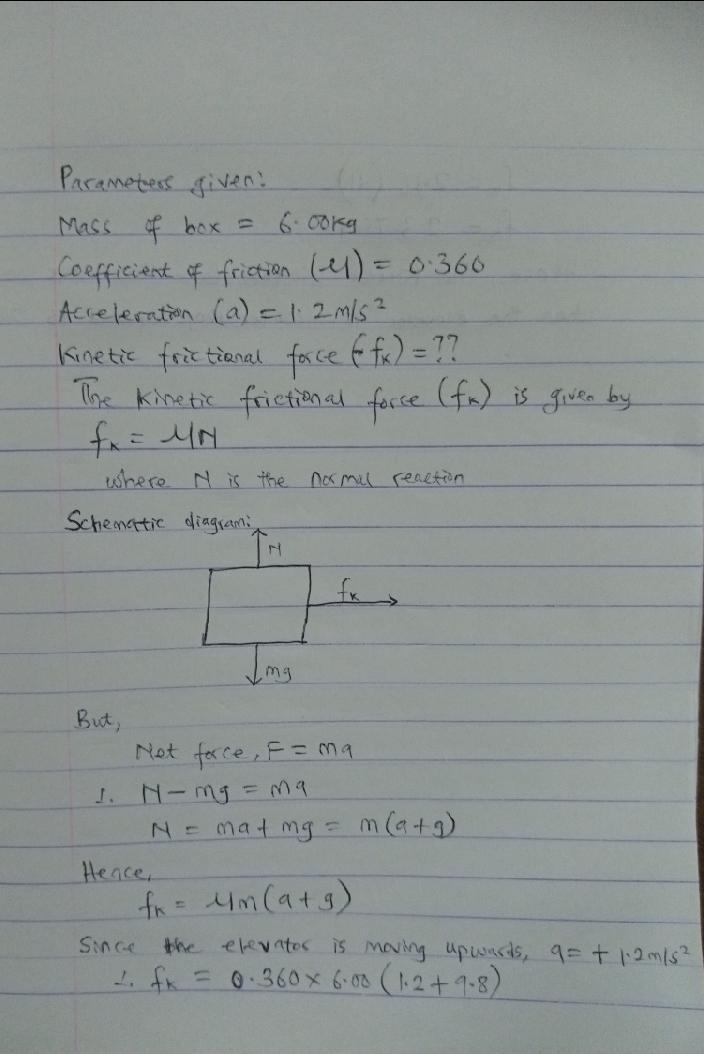 Parameters given:
Mass of box = 6.00kg
Coefficient of friction (μ) = 0.360
Acceleration (a) = 1.2m/s²
Kinetic frictional force (fₖ) = ??
The kinetic frictional force (fₖ) is given by
fₖ = μN
where N is the normal reaction
Schematic diagram:
N
fₖ
mg
But,
Net force, F = ma
∴ N - mg = ma
N = ma + mg = m(a+g)
Hence,
fₖ = μm(a+g)
Since the elevator is moving upwards, a = + 1.2m/s²
∴ fₖ = 0.360 × 6.00 (1.2 + 9.8)